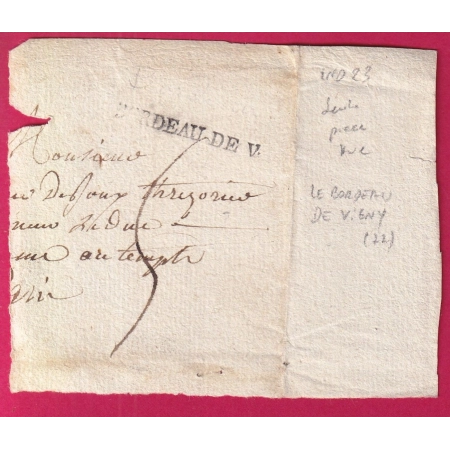 BORDEAU-DE V.
Monsieur
De Joux thresorier
rue du temple
Paris
5
IND 23
Seule
piece
vue
LE BORDEAU
DE VIGNY
(22)